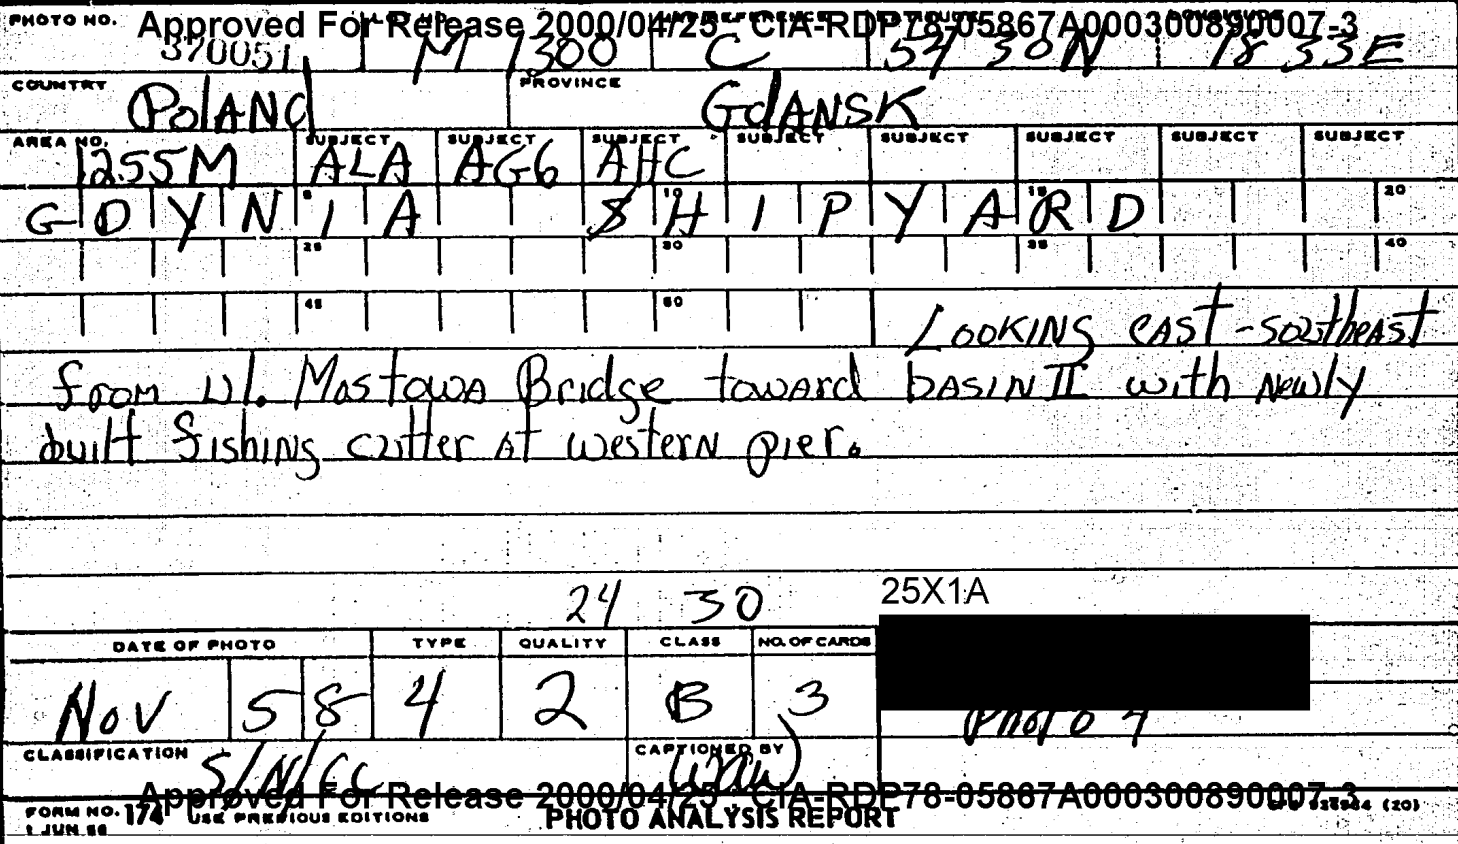 PHOTO NO. Approved For Release 2000/04/25 : CIA-RDP78-05867A000300890007-3
370051 M 1300 C 54 30N 18 33E
COUNTRY PROVINCE
PolANd GdANSK
AREA NO. SUBJECT SUBJECT SUBJECT SUBJECT SUBJECT SUBJECT SUBJECT SUBJECT
1255M ALA AG6 AHC
GDYNIA SHIPYARD
5 10 15 20
25 30 35 40
45 50
LOOKING EAST-southeast
from Ul. Mostowa Bridge toward basin II with Newly
built fishing cutter at western pier.
24 30 25X1A
DATE OF PHOTO TYPE QUALITY CLASS NO. OF CARDS
Nov 58 4 2 B 3
Photo 4
CLASSIFICATION CAPTIONED BY
Approved For Release 2000/04/25 : CIA-RDP78-05867A000300890007-3
FORM NO. 174 USE PREVIOUS EDITIONS PHOTO ANALYSIS REPORT (20)
1 JUN 56